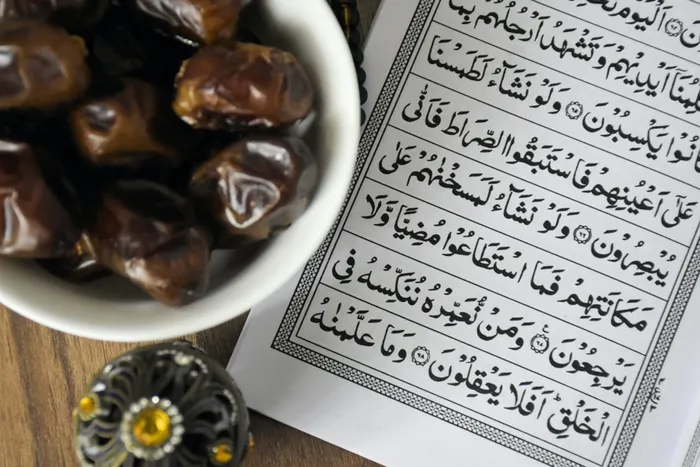 اَلْيَوْمَ
اَيْدِيْهِمْ وَتَشْهَدُ اَرْجُلُهُمْ بِمَا
انُوْا يَكْسِبُوْنَ ﴿٦٥﴾ وَلَوْ نَشَآءُ لَطَمَسْنَا
عَلٰٓى اَعْيُنِهِمْ فَاسْتَبَقُوا الصِّرَاطَ فَاَنّٰى
يُبْصِرُوْنَ ﴿٦٦﴾ وَلَوْ نَشَآءُ لَمَسَخْنٰهُمْ عَلٰى
مَكَانَتِهِمْ فَمَا اسْتَطَاعُوْا مُضِيًّا وَّلَا
يَرْجِعُوْنَ ﴿٦٧﴾ وَمَنْ نُّعَمِّرْهُ نُنَكِّسْهُ فِى
الْخَلْقِ ؕ اَفَلَا يَعْقِلُوْنَ ﴿٦٨﴾ وَمَا عَلَّمْنٰهُ